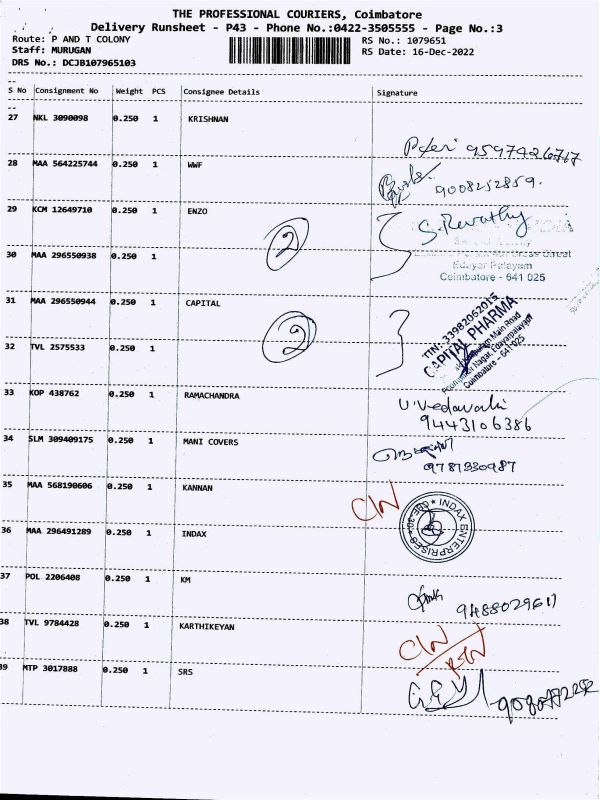 THE PROFESSIONAL COURIERS, Coimbatore
Delivery Runsheet - P43 - Phone No.:0422-3505555 - Page No.:3
Route: P AND T COLONY RS No.: 1079651
Staff: MURUGAN RS Date: 16-Dec-2022
DRS No.: DCJB107965103
S No Consignment No Weight PCS Consignee Details Signature
27 NKL 3090098 0.250 1 KRISHNAN
9597426717
28 MAA 564225744 0.250 1 WWF
9008252859.
29 KCM 12649710 0.250 1 ENZO
S. Revathy
2
30 MAA 296550938 0.250 1
Edayar Palayam
Coimbatore - 641 025
31 MAA 296550944 0.250 1 CAPITAL
TIN: 33982062015
CAPITAL PHARMA
Main Road
Nagar, Edayarpalayam
Coimbatore - 641 025
2
32 TVL 2575533 0.250 1
33 KOP 438762 0.250 1 RAMACHANDRA
V. Vedavalli
9443106386
34 SLM 309409175 0.250 1 MANI COVERS
9781330987
35 MAA 568190606 0.250 1 KANNAN
C/N
36 MAA 296491289 0.250 1 INDAX
INDAX ENTERPRISES
37 POL 2206408 0.250 1 KM
9488029611
38 TVL 9784428 0.250 1 KARTHIKEYAN
C/N
39 MTP 3017888 0.250 1 SRS